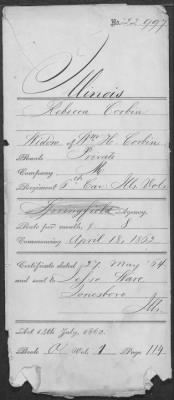 No. 22.997
Illinois
Rebecca Corbin
Widow of Wm H. Corbin
Rank Private
Company M
Regiment 5th Cav. Ills Vols
Springfield Agency.
Rate per month, $ 8
Commencing April 18, 1862
Certificate dated 27 May '64
and sent to Jesse Ware
Jonesboro
Ills.
Act 14th July, 1862.
Book A Vol. 1 Page 114